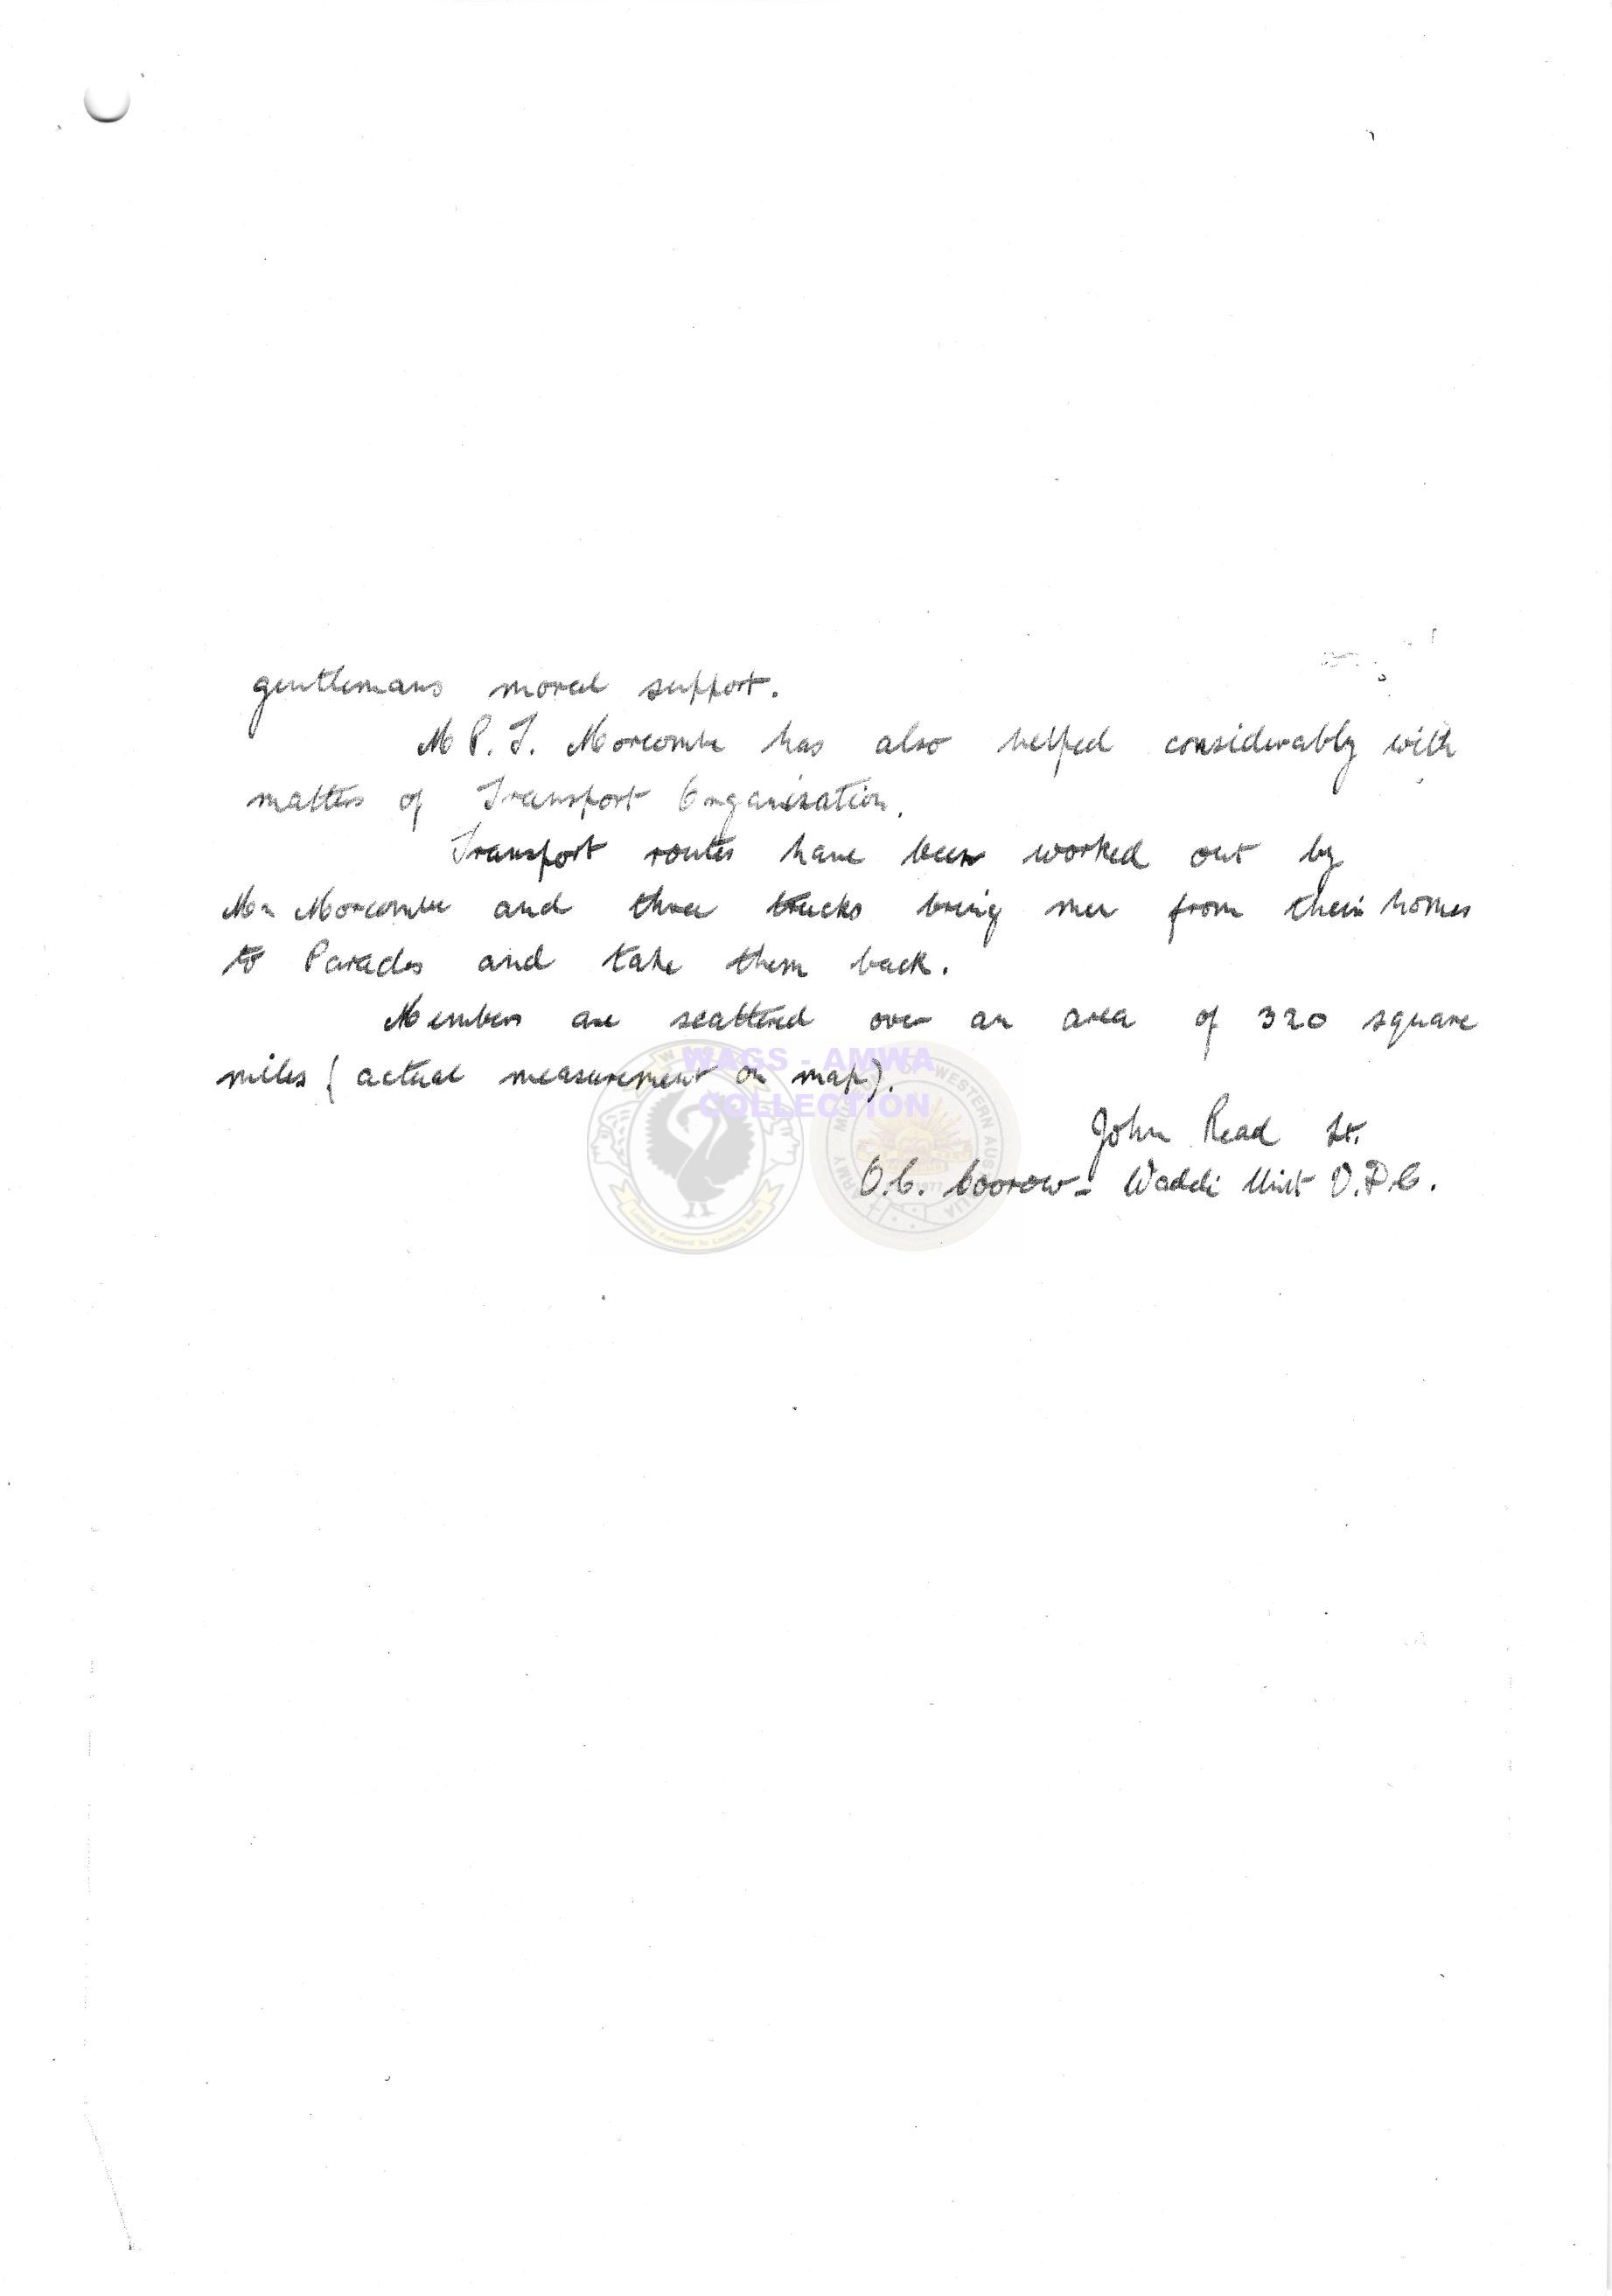 gentlemans moral support.
M P. J. Morcombe has also helped considerably with
matters of Transport Organization.
Transport routes have been worked out by
Mr Morcombe and three trucks bring men from their homes
to Parades and take them back.
Members are scattered over an area of 320 square
miles (actual measurement on map).
WAGS - AMWA
COLLECTION
John Read Lt.
O.C. Coorow - Waddi Unit V.D.C.
WESTERN AUSTRALIA
Looking Forward to Looking Back